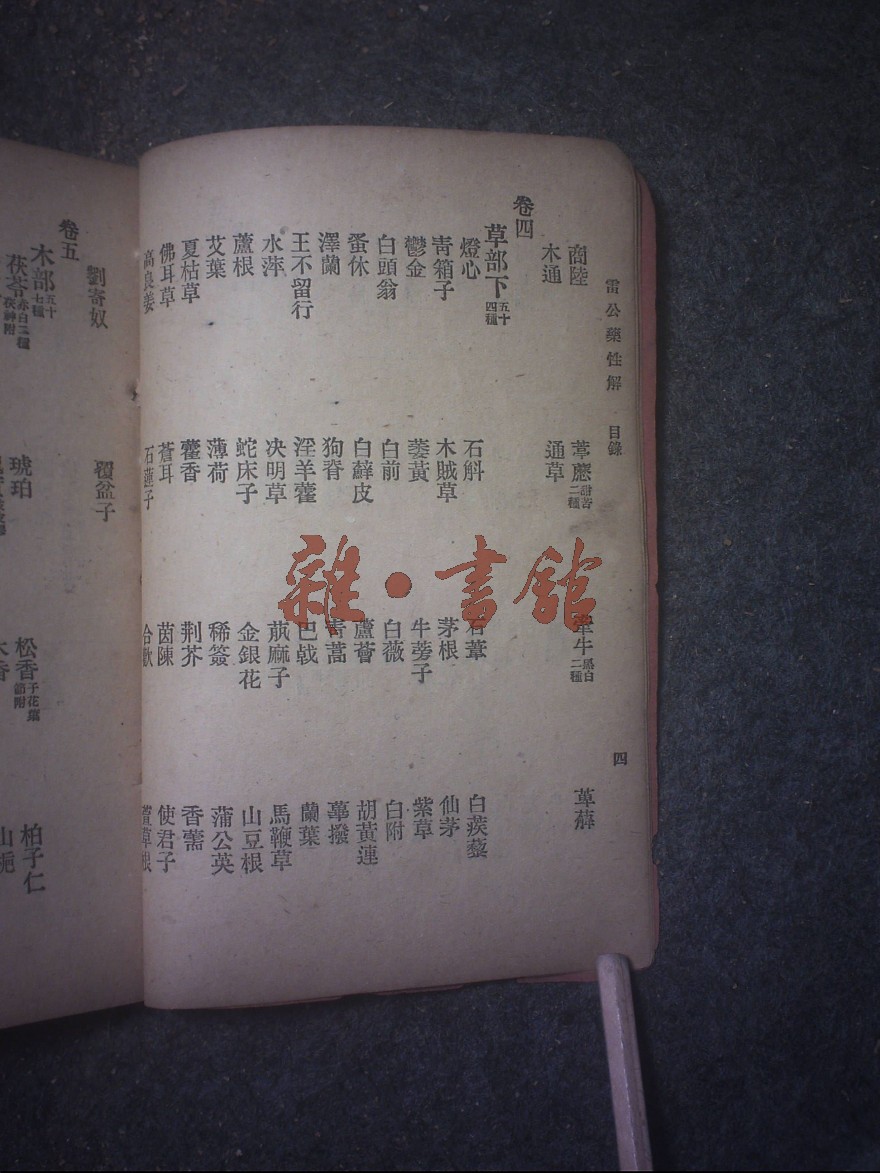 雷公藥性解 目錄 四
商陸 葶 甜苦二種 牽牛 黑白二種 萆薢
木通 通草
卷四
草部下 五十四種
燈心 石斛 石葦 白蒺藜
青箱子 木賊草 茅根 仙茅
鬱金 牛蒡子 紫草
白頭翁 白前 白薇 白附
蚤休 白蘚皮 蘆薈 胡黃連
澤蘭 狗脊 青蒿 蓽撥
王不留行 淫羊藿 巴戟 蘭葉
水萍 决明草 麻子 馬鞭草
蘆根 蛇床子 金銀花 山豆根
艾葉 薄荷 稀簽 蒲公英
夏枯草 藿香 荆芥 香薷
佛耳草 蒼耳 茵陳 使君子
高良姜 石蓮子 合歡 萱草根
劉寄奴 覆盆子
卷五
木部 五十七種
茯苓 赤白二種茯神附 琥珀 松香 子花節附 柏子仁
木香 山梔
雜·書館